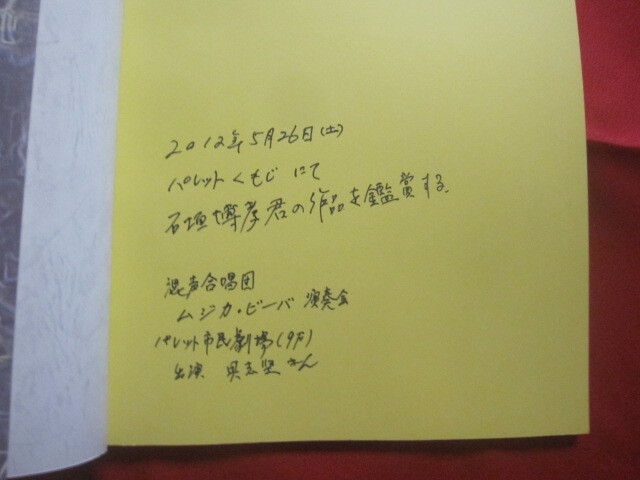 2012年5月26日(土)
パレットくもじ にて
石垣博孝君の作品を鑑賞する
混声合唱団
ムジカ・ビーバ 演奏会
パレット市民劇場(9F)
出演 さん